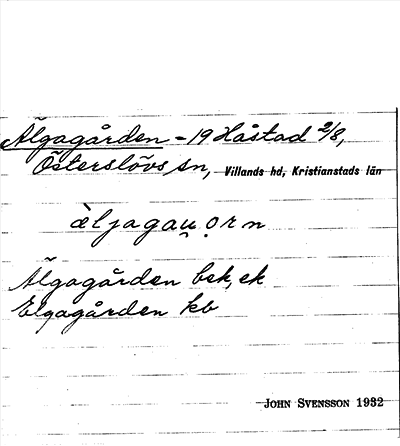 Älgagården - 19 Håstad 2/8,
Österslövs sn, Villands hd, Kristianstads län
èljagau̯ọrn
Älgagården bsk, ek
Elgagården kb
JOHN SVENSSON 1932